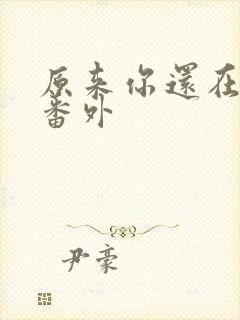 原来你還在
番外
尹豪